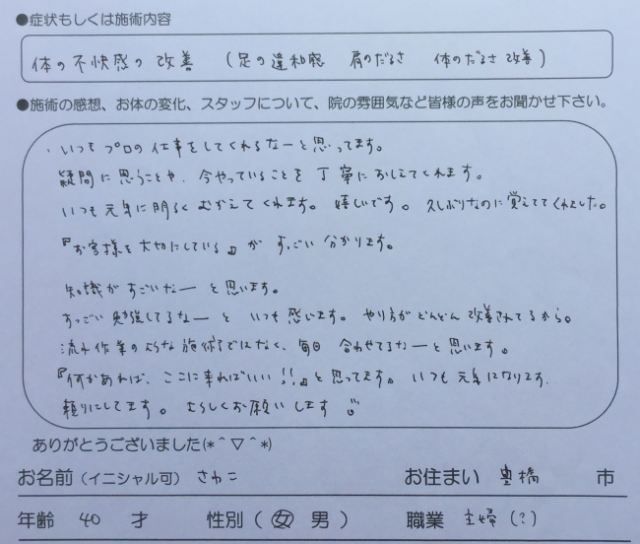 ●症状もしくは施術内容
体の不快感の改善 (足の違和感 肩のだるさ 体のだるさ改善)
●施術の感想、お体の変化、スタッフについて、院の雰囲気など皆様の声をお聞かせ下さい。
・いつもプロの仕事をしてくれるなーと思ってます。
疑問に思うことや、今やっていることを丁寧におしえてくれます。
いつも元気に明るくむかえてくれます。嬉しいです。久しぶりなのに覚えててくれた。
『お客様を大切にしている』がすっごい分かります。
知識がすごいなーと思います。
すっごい勉強してるなーといつも感います。やり方がどんどん改善されてるから。
流れ作業のような施術ではなく、毎日合わせてるなーと思います。
『何かあれば、ここに来ればいい!!』と思ってます。いつも元気になります。
頼りにしてます。よろしくお願いします
ありがとうございました(*^▽^*)
お名前(イニシャル可) さわこ お住まい 豊橋 市
年齢 40 才 性別 ( 女 男 ) 職業 主婦(?)